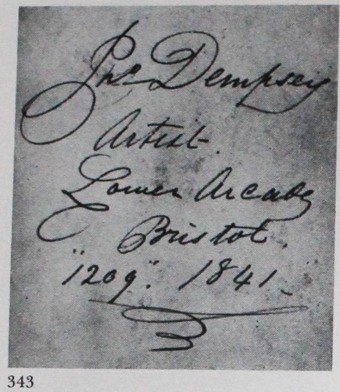 Jno. Dempsey
Artist.
Lower Arcade
Bristol.
"1209". 1841.
343